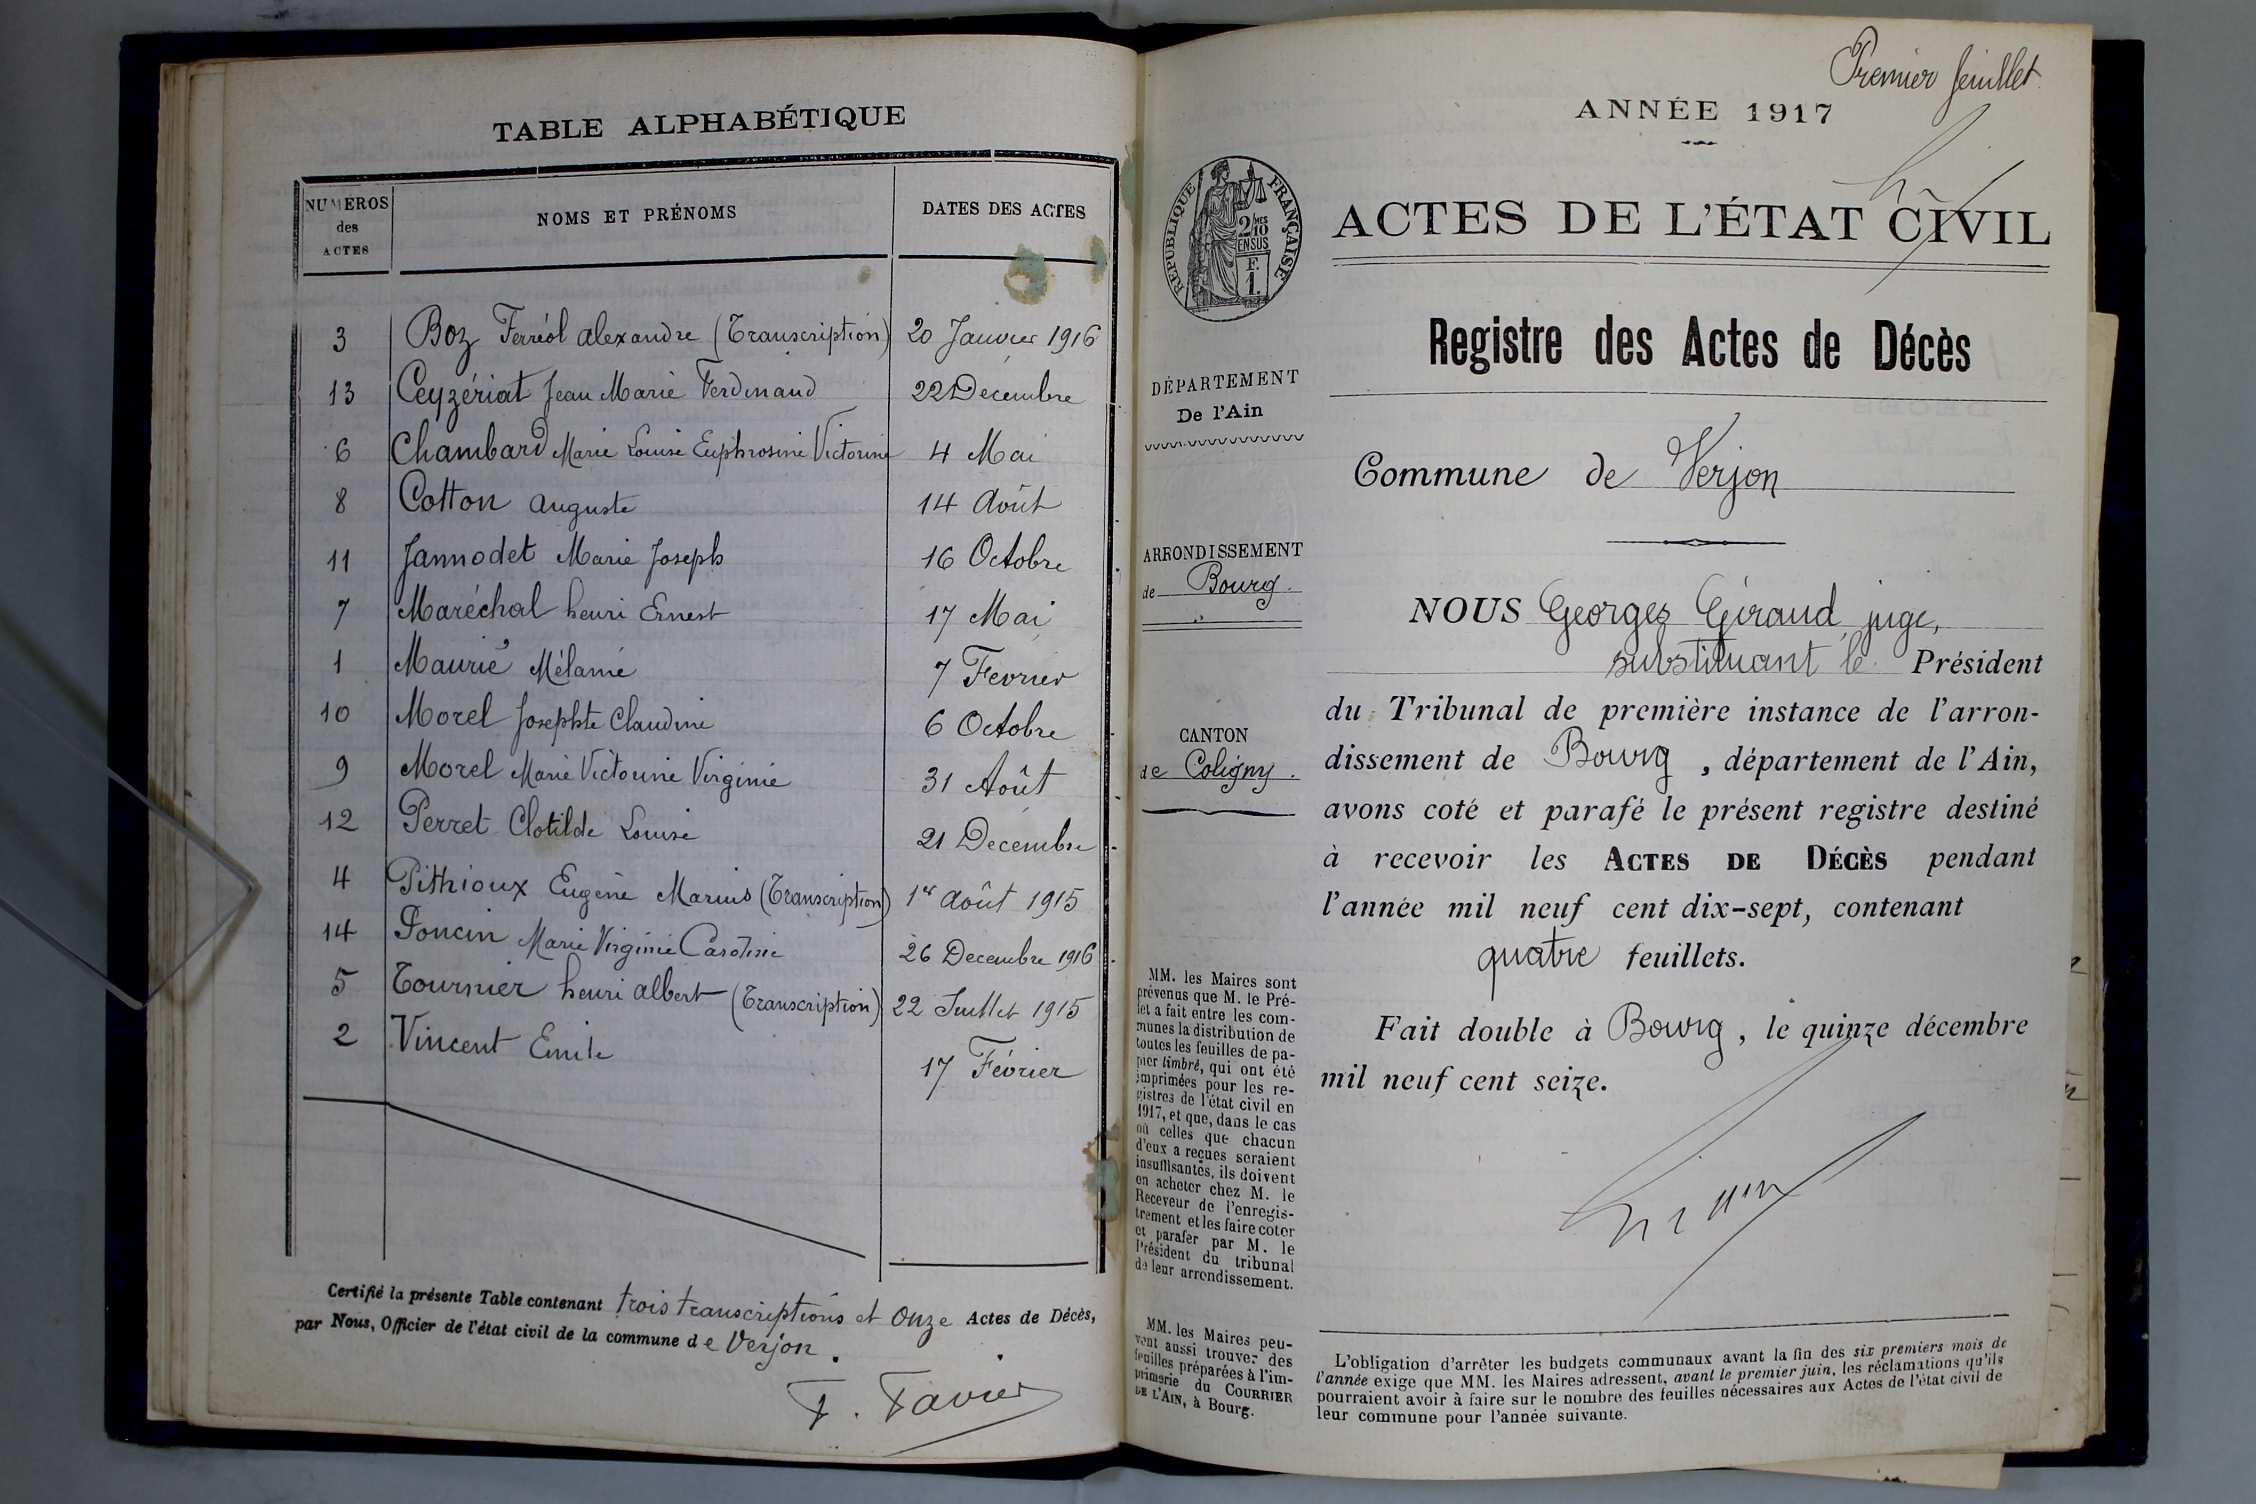 TABLE ALPHABÉTIQUE
NUMÉROS des ACTES
NOMS ET PRÉNOMS
DATES DES ACTES
3 Boz Ferréol alexandre (Transcription) 20 Janvier 1916
13 Ceyzériat Jean Marie Ferdinand 22 Decembre
6 Chambard Marie Louise Euphrosine Victorine 4 Mai
8 Cotton auguste 14 Août
11 Jannodet Marie Joseph 16 Octobre
7 Maréchal henri Ernest 17 Mai
1 Maurié Mélanie 7 Fevrier
10 Morel Josephte Claudine 6 Octobre
9 Morel Marie Victorine Virginie 31 Août
12 Perret Clotilde Louise 21 Decembre
4 Pithioux Eugène Marius (Transcription) 1er août 1915
14 Poncin Marie Virginie Caroline 26 Decembre 1916
5 Tournier henri albert (Transcription) 22 Juillet 1915
2 Vincent Emile 17 Février
Certifié la présente Table contenant trois transcriptions et onze Actes de Décès,
par Nous, Officier de l'état civil de la commune de Verjon.
F. Favier
Premier feuillet
ANNÉE 1917
RÉPUBLIQUE FRANÇAISE
2/10 MES
EN SUS
F.
1.
ACTES DE L'ÉTAT CIVIL
Registre des Actes de Décès
DÉPARTEMENT
De l'Ain
Commune de Verjon
ARRONDISSEMENT
de Bourg
CANTON
de Coligny.
NOUS Georges Giraud juge,
substituant le Président
du Tribunal de première instance de l'arron-
dissement de Bourg, département de l'Ain,
avons coté et parafé le présent registre destiné
à recevoir les ACTES DE DÉCÈS pendant
l'année mil neuf cent dix-sept, contenant
quatre feuillets.
Fait double à Bourg, le quinze décembre
mil neuf cent seize.
MM. les Maires sont
prévenus que M. le Pré-
fet a fait entre les com-
munes la distribution de
toutes les feuilles de pa-
pier timbré, qui ont été
imprimées pour les re-
gistres de l'état civil en
1917, et que, dans le cas
où celles que chacun
d'eux a reçues seraient
insuffisantes, ils doivent
en acheter chez M. le
Receveur de l'enregis-
trement et les faire coter
et parafer par M. le
Président du tribunal
de leur arrondissement.
MM. les Maires peu-
vent aussi trouver des
feuilles préparées à l'im-
primerie du COURRIER
DE L'AIN, à Bourg.
L'obligation d'arrêter les budgets communaux avant la fin des six premiers mois de
l'année exige que MM. les Maires adressent, avant le premier juin, les réclamations qu'ils
pourraient avoir à faire sur le nombre des feuilles nécessaires aux Actes de l'état civil de
leur commune pour l'année suivante.